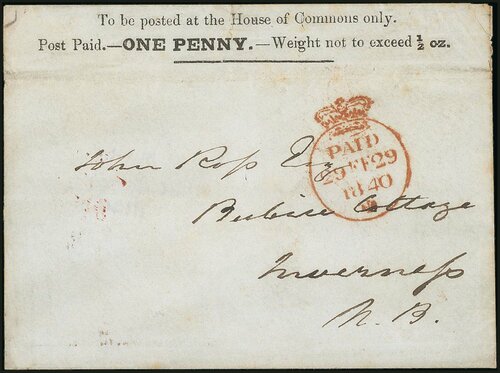 To be posted at the House of Commons only.
Post Paid.—ONE PENNY.—Weight not to exceed ½ oz.
PAID
29 FE 29
1840
John Ross Esq
Berbice Cottage
Inverness
N. B.